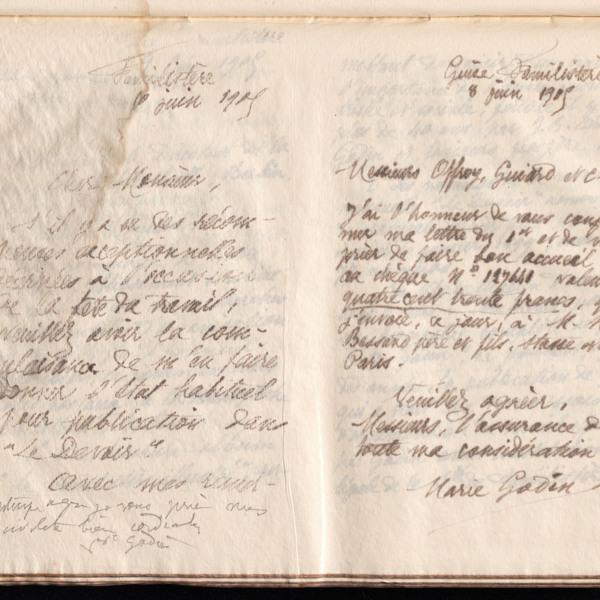 Familistère
juin 1905
Cher Monsieur,
S'il y a eu des récom-
penses exceptionnelles
décernées à l'occasion
de la fête du travail,
veuillez avoir la com-
plaisance de m'en faire
donner l'état habituel
pour publication dans
"Le Devoir"
avec mes remer-
je vous prie mes
bien cordiales
Godin
Guise Familistère
8 juin 1905
Messieurs Offroy, Guiard et C
J'ai l'honneur de vous conf
mer ma lettre du 1er et de v
prier de faire bon accueil
au chèque N° 127441 valeu
quatre cent trente francs, q
j'envoie, à jour, à M. 
père et fils, 
Paris.
Veuillez agréer,
Messieurs, l'assurance de
toute ma considération
Marie Godin